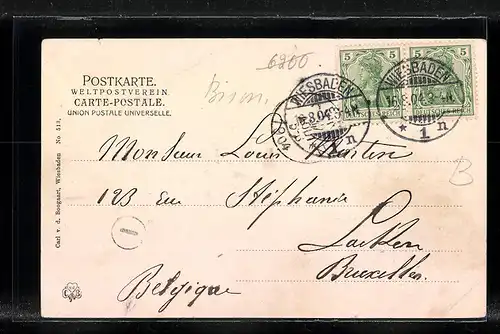 6200
5 5
POSTKARTE.
WELTPOSTVEREIN.
CARTE-POSTALE.
UNION POSTALE UNIVERSELLE.
WIESBADEN
* 1 n
WIESBADEN
16.8.04.
* 1 n
Monsieur Louis
123 Rue Stéphanie
Laeken
Bruxelles.
Belgique
B
1
Carl v. d. Boogaart, Wiesbaden No 513.